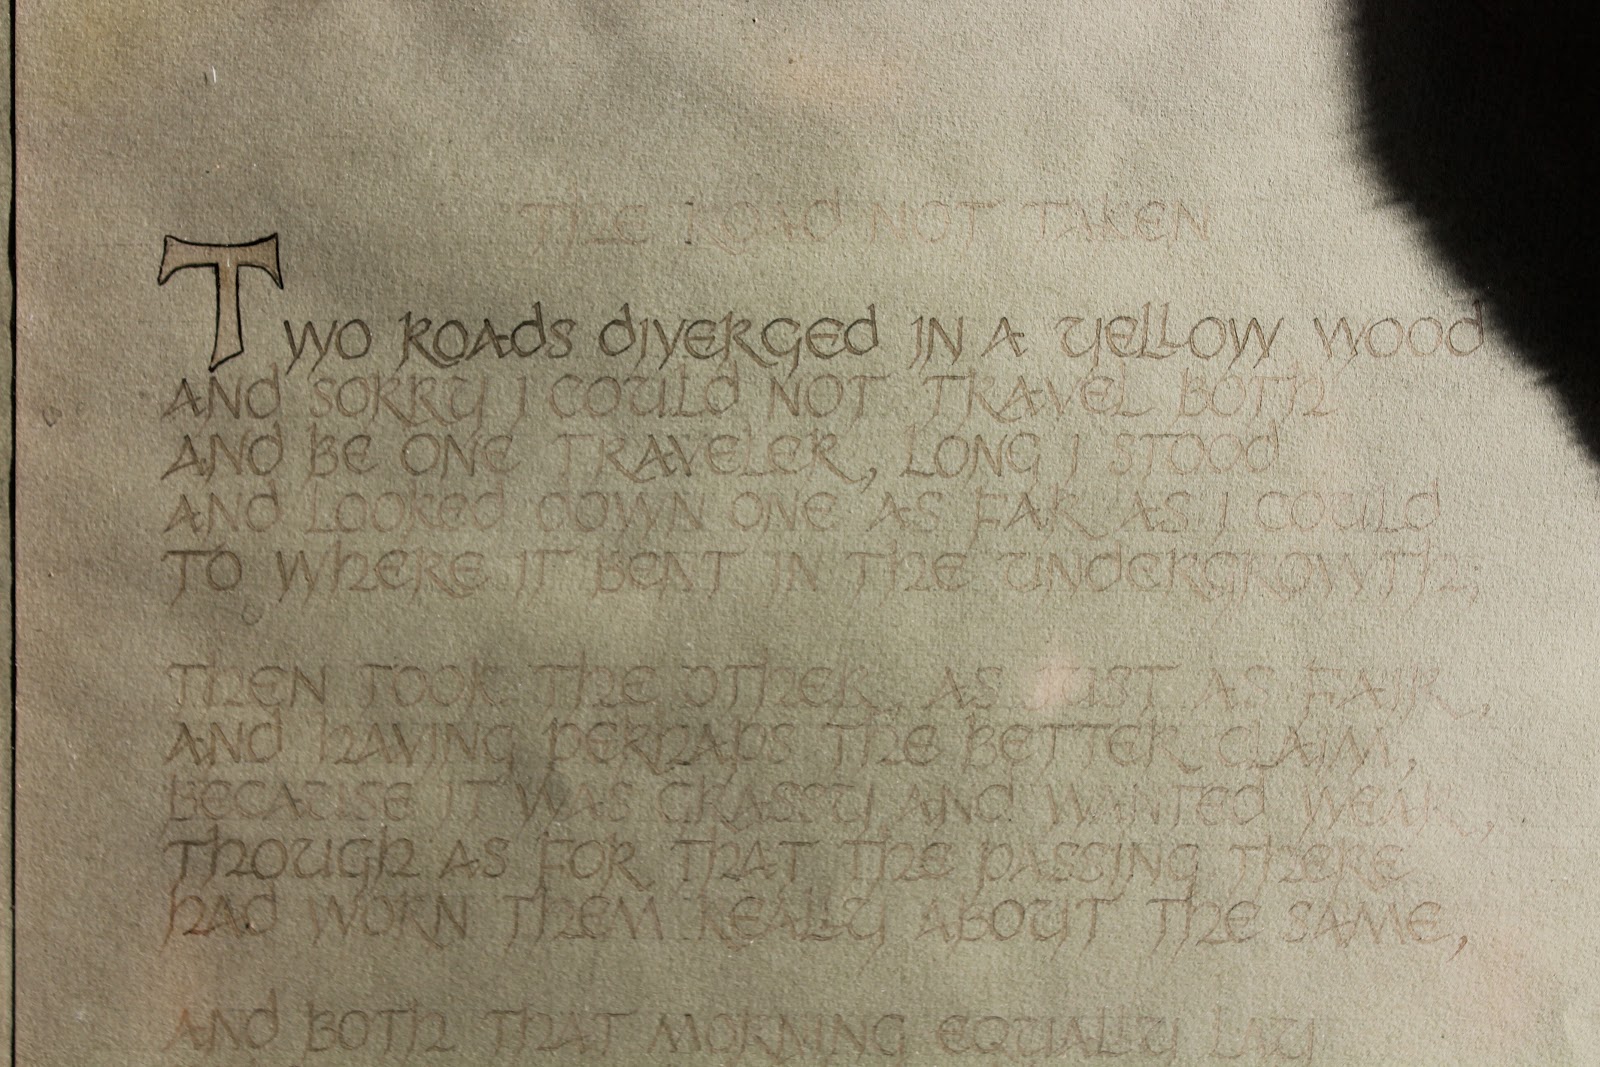 THE ROAD NOT TAKEN
TWO ROADS DIVERGED IN A YELLOW WOOD
AND SORRY I COULD NOT TRAVEL BOTH
AND BE ONE TRAVELER, LONG I STOOD
AND LOOKED DOWN ONE AS FAR AS I COULD
TO WHERE IT BENT IN THE UNDERGROWTH;
THEN TOOK THE OTHER, AS JUST AS FAIR,
AND HAVING PERHAPS THE BETTER CLAIM,
BECAUSE IT WAS GRASSY AND WANTED WEAR,
THOUGH AS FOR THAT THE PASSING THERE
HAD WORN THEM REALLY ABOUT THE SAME,
AND BOTH THAT MORNING EQUALLY LAY